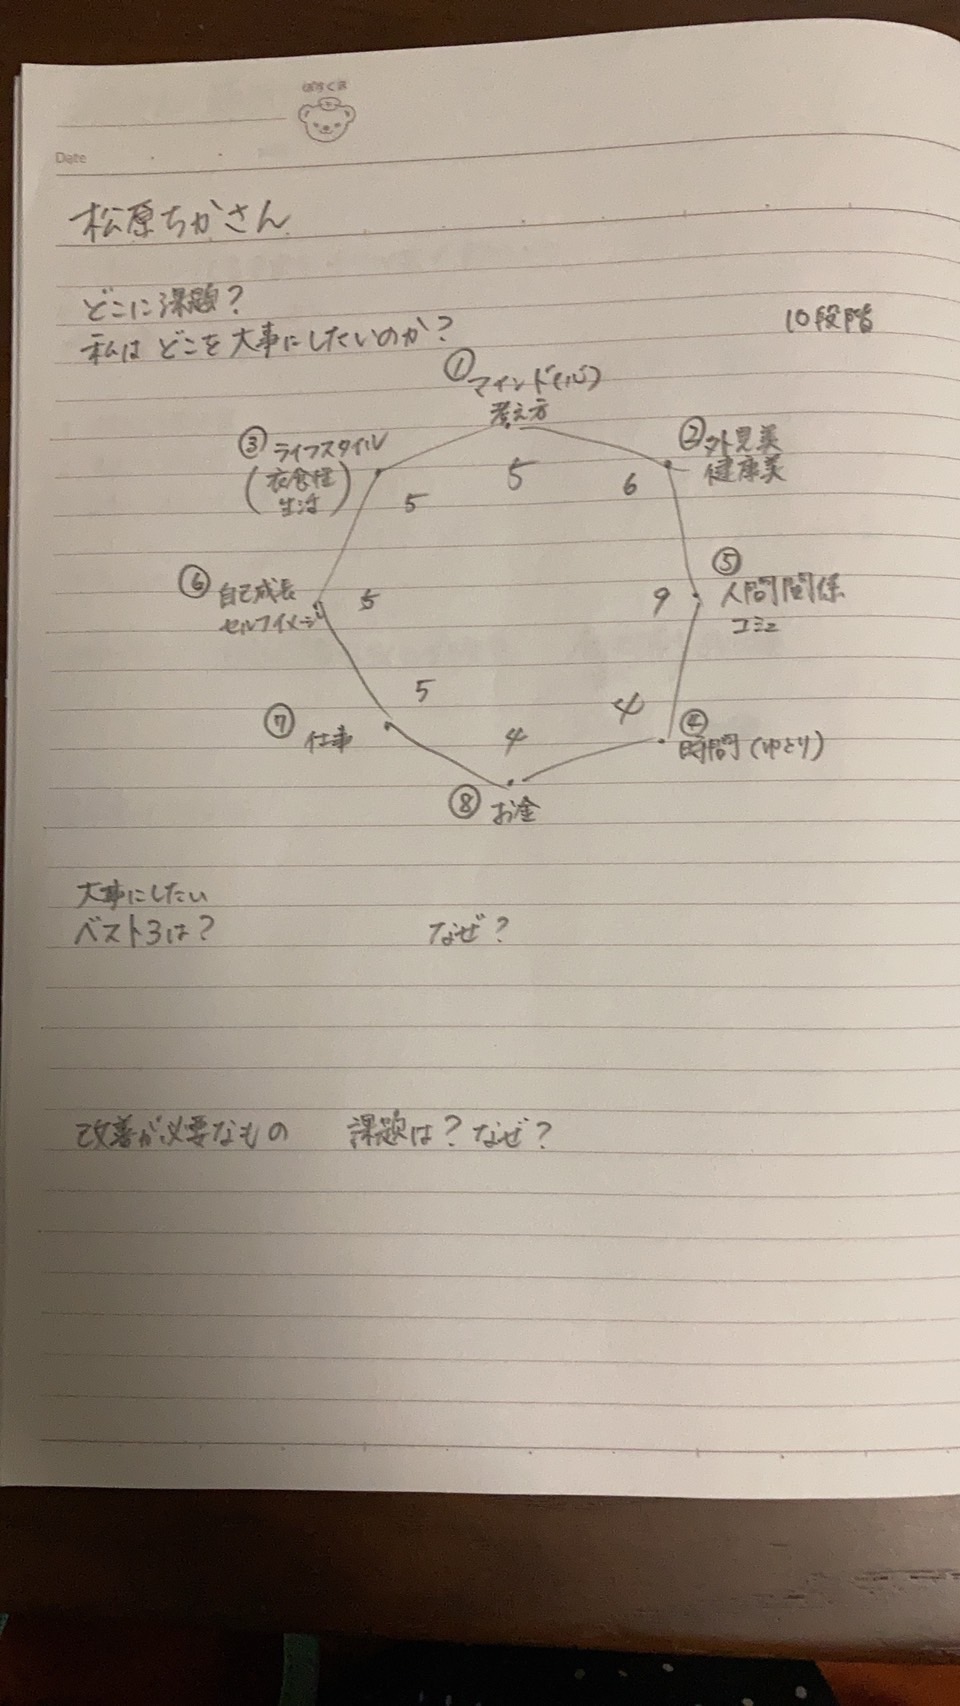 Date
松原ちかさん
どこに課題?
私は どこを大事にしたいのか?
10段階
① マインド(心)
考え方
5
② 外見美
健康美
6
③ ライフスタイル
(衣食住
生活)
5
⑤
人間関係
コミュ
9
⑥ 自己成長
セルフイメージ
5
④
時間(ゆとり)
4
⑦ 仕事
5
⑧ お金
4
大事にしたい
ベスト3は? なぜ?
改善が必要なもの 課題は?なぜ?